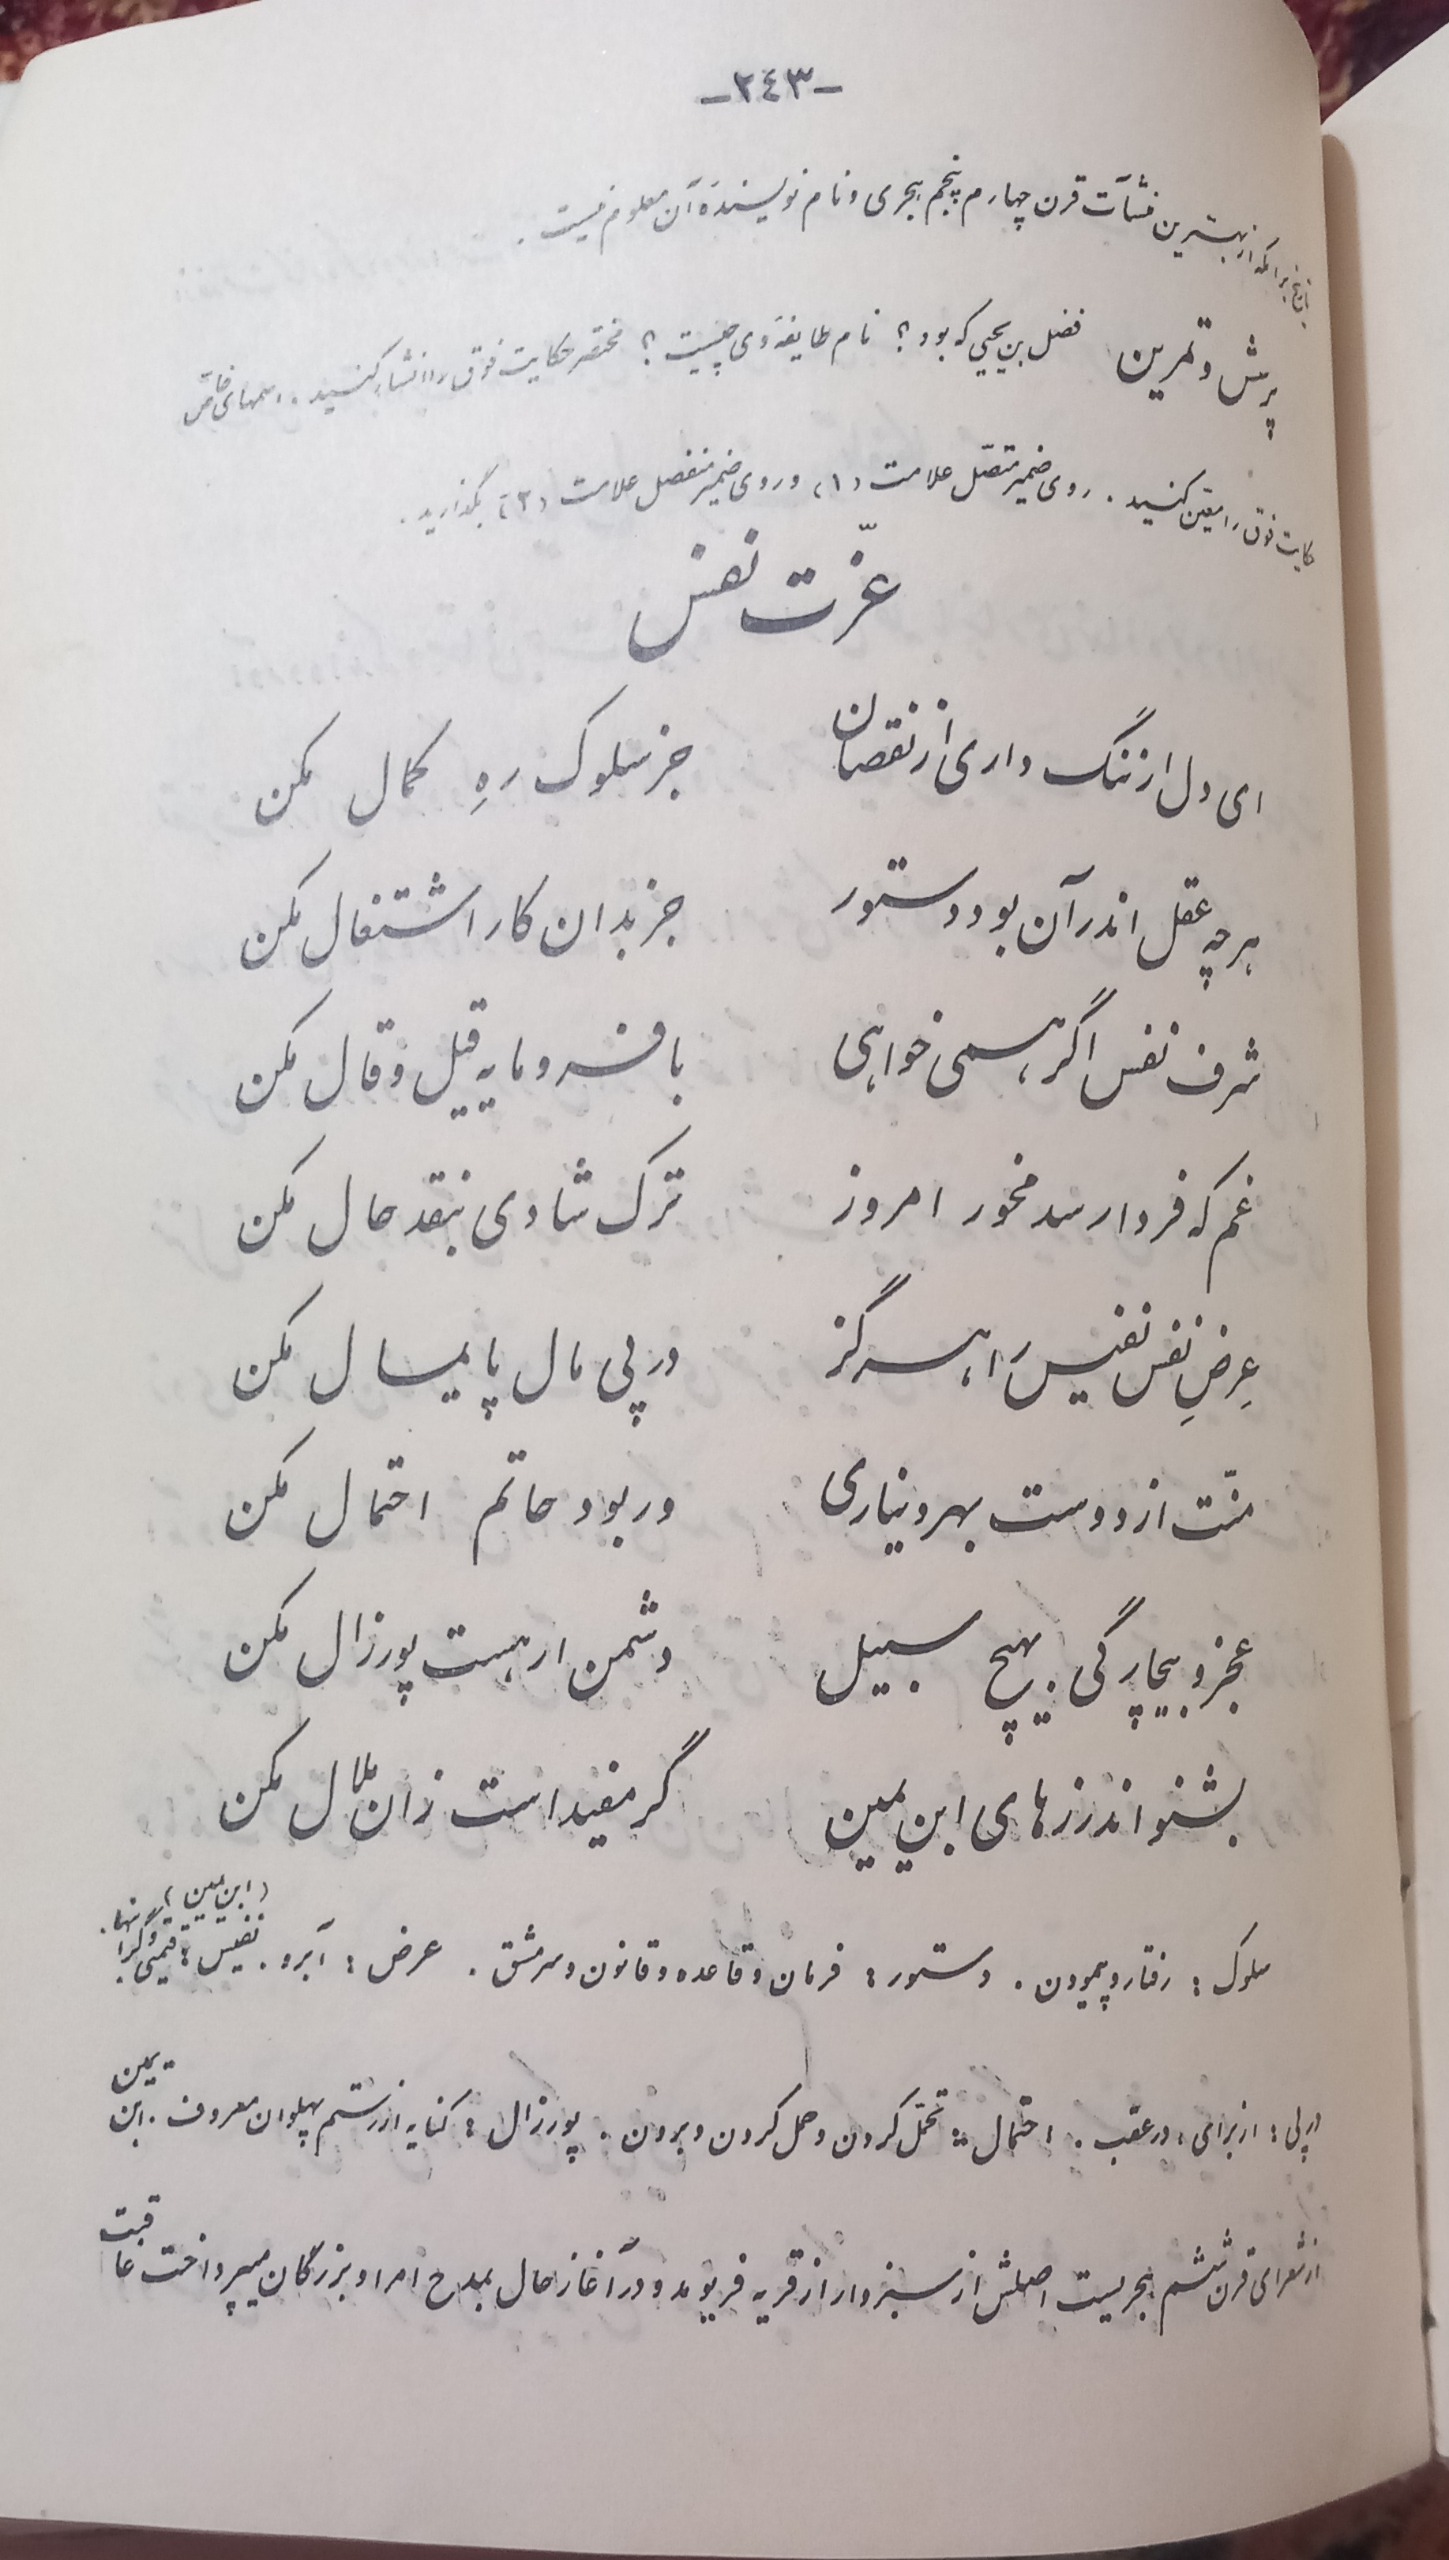 -۲۴۳-
تاریخ برامکه از بهترین منشآت قرن چهارم پنجم هجری و نام نویسندهٔ آن معلوم نیست .
پرسش و تمرین فضل بن یحیی که بود ؟ نام طایفهٔ وی چیست ؟ مختصر حکایت فوق را انشاء کنید . اسمهای خاصّ
حکایت فوق را معیّن کنید . روی ضمیر متصّل علامت (۱) و روی ضمیر منفصل علامت (۲) بگذارید .
عزّت نفس
ای دل ار ننگ داری از نقصان جز سلوک رهِ کمال مکن
هر چه عقل اندر آن بود دستور جز بدان کار اشتغال مکن
شرف نفس اگر همی خواهی با فرومایه قیل و قال مکن
غم که فردا رسد مخور امروز ترک شادی بنقد حال مکن
عِرضِ نفس نفیس را هرگز در پی مال پایمال مکن
منّت از دوست بهر دیناری ور بود حاتم احتمال مکن
عجز و بیچارگی بهیچ سبیل دشمن ار هست پور زال مکن
بشنو اندرزهای ابن یمین گر مفید است زان ملال مکن
(ابن یمین)
سلوک : رفتار و پیمودن . دستور : فرمان و قاعده و قانون و سرمشق . عرض : آبرو . نفیس : قیمتی و گرانبها .
در پی : از برای ، در عقب . احتمال : تحمّل کردن و حمل کردن و بردن . پور زال : کنایه از رستم پهلوان معروف . ابن یمین
از شعرای قرن ششم هجریست اصلش از سبزوار از قریه فریومد و در آغاز حال بمدح امرا و بزرگان میپرداخت عاقبت